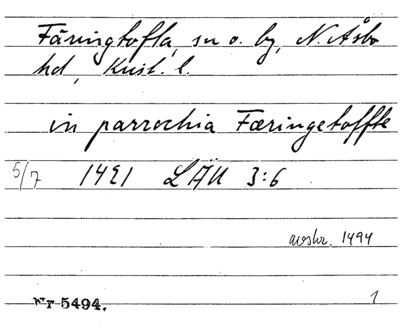 Färingtofta, sn o. by, N. Åsbo
hd, Krist. l.
in parrochia Færingetoffte
5/7 1491 LÄU 3:6
avskr. 1494
Nr 5494. 1